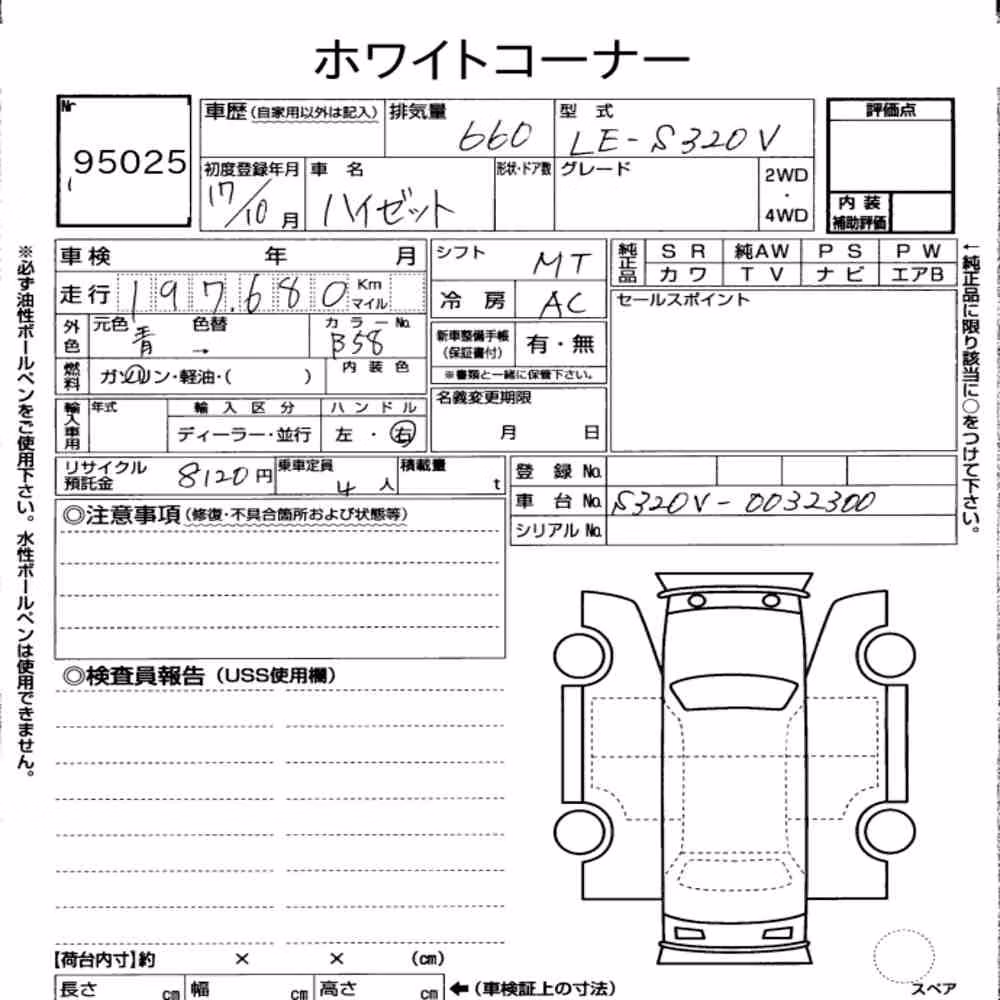 ホワイトコーナー
Nr
95025
車歴(自家用以外は記入)
排気量
660
型 式
LE-S320V
評価点
初度登録年月
17/10月
車 名
ハイゼット
形状・ドア数
グレード
2WD
・
4WD
内 装
補助評価
車検 年 月
走行 197,680 Km
マイル
外色
元色 青
色替 →
カラーNo.
B58
燃料
ガソリン・軽油・( )
内 装 色
輸入車用
年式
輸 入 区 分
ディーラー・並行
ハ ン ド ル
左 ・ 右
シフト MT
冷 房 AC
新車整備手帳
(保証書付)
有・無
※書類と一緒に保管下さい。
名義変更期限
月 日
純正品
S R 純AW P S P W
カ ワ T V ナ ビ エアB
セールスポイント
リサイクル
預託金
8120円
乗車定員
4人
積載量
t
登 録 No.
車 台 No. S320V-0032300
シリアル No.
◎注意事項(修復・不具合箇所および状態等)
◎検査員報告(USS使用欄)
【荷台内寸】約 × × (cm)
長さ cm 幅 cm 高さ cm
←(車検証上の寸法)
スペア
※必ず油性ボールペンをご使用下さい。水性ボールペンは使用できません。
←純正品に限り該当に○をつけて下さい。